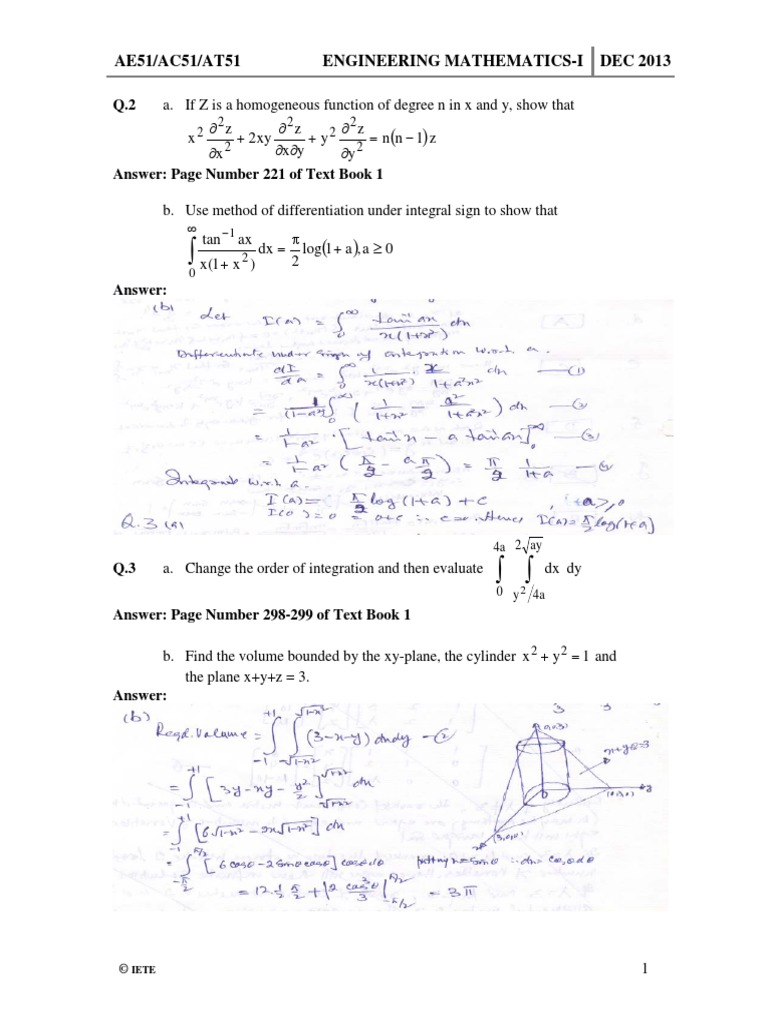 AE51/AC51/AT51 ENGINEERING MATHEMATICS-I DEC 2013
Q.2 a. If Z is a homogeneous function of degree n in x and y, show that
x² ∂²z/∂x² + 2xy ∂²z/∂x∂y + y² ∂²z/∂y² = n(n − 1)z
Answer: Page Number 221 of Text Book 1
b. Use method of differentiation under integral sign to show that
∫₀^∞ tan⁻¹ ax / x(1 + x²) dx = π/2 log(1 + a), a ≥ 0
Answer:
(b) Let I(a) = ∫₀^∞ tan⁻¹ax / x(1+x²) dx
Differentiate under sign of integration w.r.t. a.
dI/da = ∫₀^∞ 1/x(1+x²) · x/1+a²x² dx —(1)
= 1/(1-a²) ∫₀^∞ (1/1+x² − a²/1+a²x²) dx
= 1/1-a² · [tan⁻¹x − a tan⁻¹ax]₀^∞ —(3)
= 1/1-a² (π/2 − a π/2) = π/2 1/1+a
Integrate w.r.t. a.
I(a) = π/2 log(1+a) + c , a ≥ 0
I(0) = 0 = 0+c ∴ c=0. Hence I(a) = π/2 log(1+a)
Q.3 (a)
Q.3 a. Change the order of integration and then evaluate ∫₀^4a ∫_{y²/4a}^{2√ay} dx dy
Answer: Page Number 298-299 of Text Book 1
b. Find the volume bounded by the xy-plane, the cylinder x² + y² = 1 and
the plane x+y+z = 3.
Answer:
3 3
(b) Reqd. Volume = ∫₋₁^+1 ∫_{-√1-x²}^{√1-x²} (3-x-y) dxdy —(2)
= ∫₋₁^+1 [3y-xy- y²/2]_{√1-x²}^{√1-x²} dx
= ∫₋₁^+1 [6√1-x² − 2x√1-x²] dx
= ∫_{-π/2}^{π/2} [6 cosθ − 2 sinθ cosθ] cosθ dθ putting x = sinθ ∴ dx = cosθ dθ
= 12 · 1/2 π/2 + |2 cos³θ/3|_{-π/2}^{π/2} = 3π
(0,0,3)
(0,3,0) y
(3,0,0)
© IETE 1